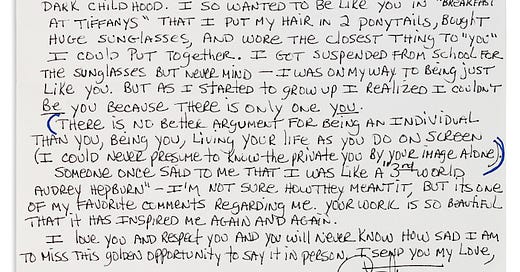 DARK CHILDHOOD. I SO WANTED TO BE LIKE YOU IN "BREAKFAST
AT TIFFANYS" THAT I PUT MY HAIR IN 2 PONYTAILS, BOUGHT
HUGE SUNGLASSES, AND WORE THE CLOSEST THING TO "YOU"
I COULD PUT TOGETHER. I GET SUSPENDED FROM SCHOOL FOR
THE SUNGLASSES BUT NEVER MIND – I WAS ON MY WAY TO BEING JUST
LIKE YOU. BUT AS I STARTED TO GROW UP I REALIZED I COULDN'T
BE YOU BECAUSE THERE IS ONLY ONE YOU.
(THERE IS NO BETTER ARGUMENT FOR BEING AN INDIVIDUAL
THAN YOU, BEING YOU, LIVING YOUR LIFE AS YOU DO ON SCREEN
(I COULD NEVER PRESUME TO KNOW THE PRIVATE YOU BY YOUR IMAGE ALONE).)
SOMEONE ONCE SAID TO ME THAT I WAS LIKE A "3RD WORLD
AUDREY HEPBURN" – I'M NOT SURE HOW THEY MEANT IT, BUT ITS ONE
OF MY FAVORITE COMMENTS REGARDING ME. YOUR WORK IS SO BEAUTIFUL
THAT IT HAS INSPIRED ME AGAIN AND AGAIN.
I LOVE YOU AND RESPECT YOU AND YOU WILL NEVER KNOW HOW SAD I AM
TO MISS THIS GOLDEN OPPORTUNITY TO SAY IT IN PERSON. I SEND YOU MY LOVE,